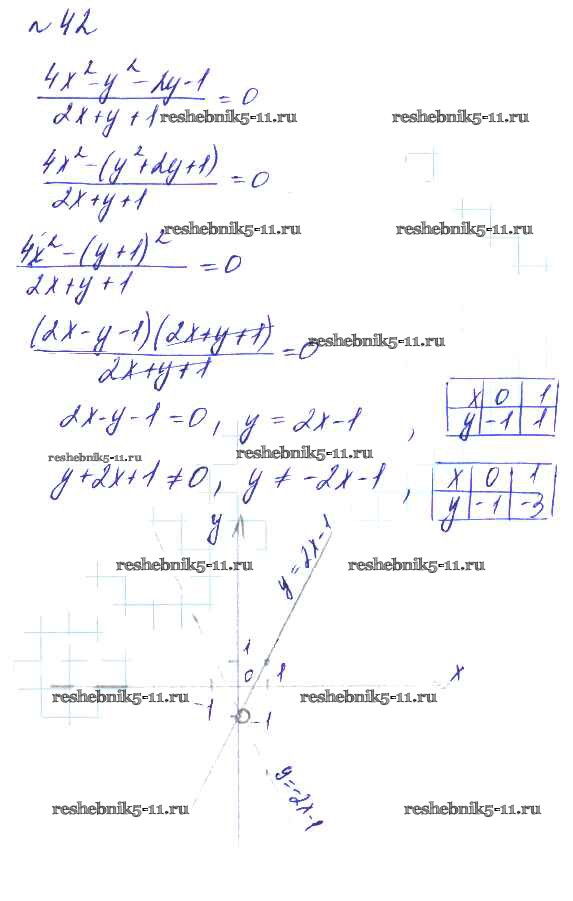 №42
4x² - y² - 2y - 1 / 2x + y + 1 = 0
reshebnik5-11.ru reshebnik5-11.ru
4x² - (y² + 2y + 1) / 2x + y + 1 = 0
reshebnik5-11.ru reshebnik5-11.ru
4x² - (y + 1)² / 2x + y + 1 = 0
(2x - y - 1)(2x + y + 1) / 2x + y + 1 = 0
reshebnik5-11.ru
2x - y - 1 = 0, y = 2x - 1,
x 0 1
y -1 1
reshebnik5-11.ru reshebnik5-11.ru
y + 2x + 1 ≠ 0, y ≠ -2x - 1,
x 0 1
y -1 -3
y
y = 2x - 1
reshebnik5-11.ru reshebnik5-11.ru
1
0 1 x
reshebnik5-11.ru reshebnik5-11.ru
-1 -1
y = -2x - 1
reshebnik5-11.ru reshebnik5-11.ru